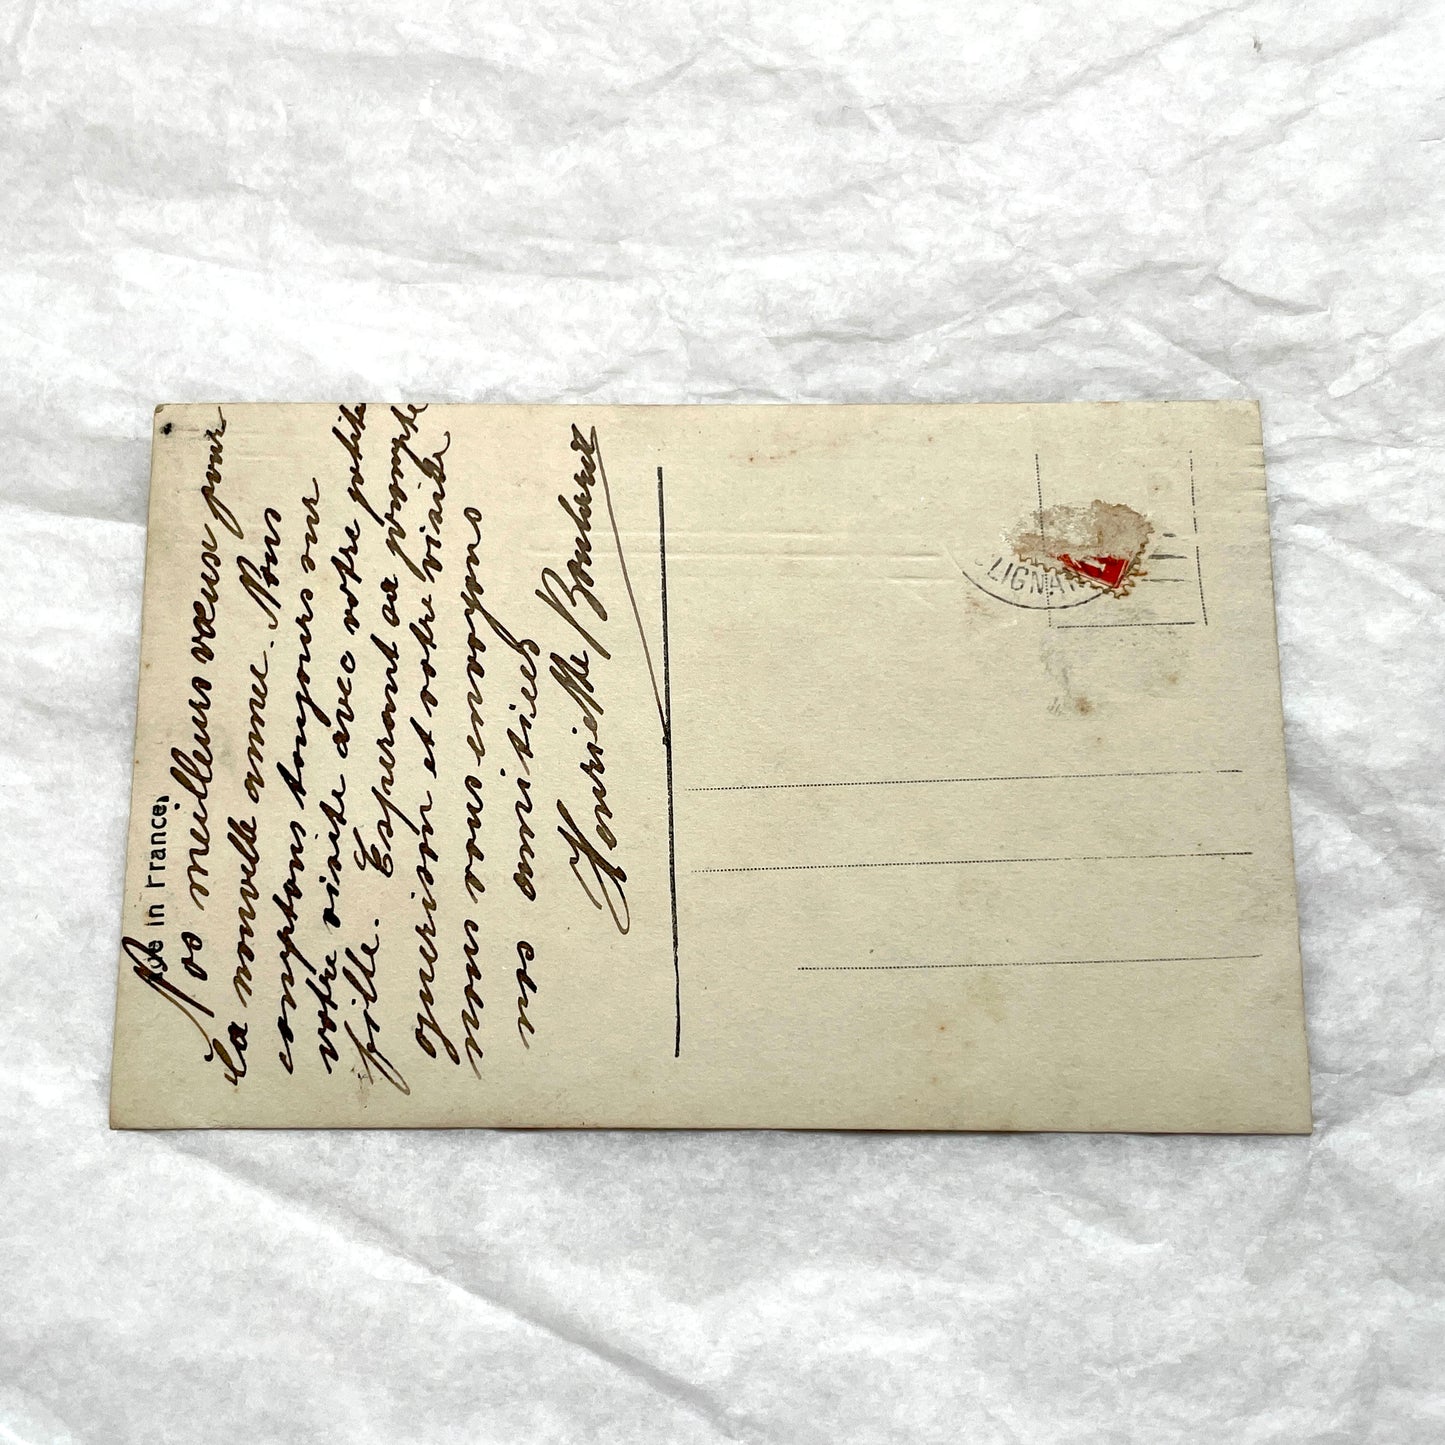 Nos meilleurs vœux pour
la nouvelle année. Nous
comptons toujours sur
votre visite avec votre petite
fille. Esperant sa prompte
guerison et votre visite
nous vous
son amitiés
Henriette
in France
LIGNA